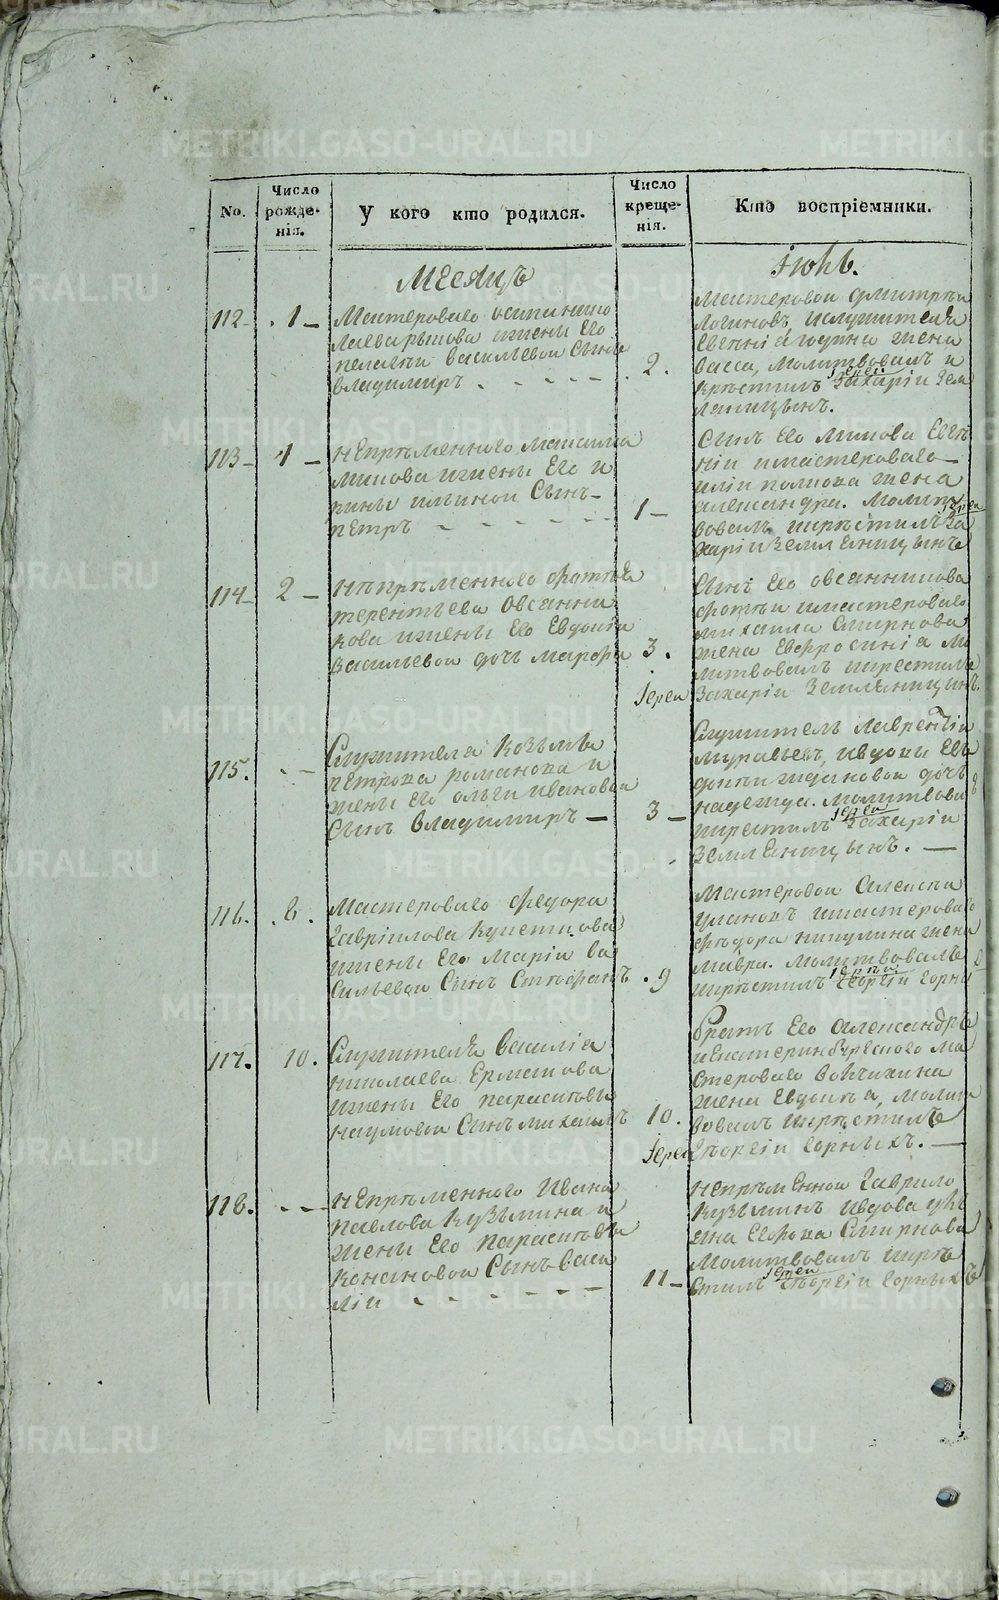 No.
Число рожде-нія.
У кого кто родился.
Число креще-нія.
Кто воспріемники.
Месяцъ
Іюнь.
112 1 Мастероваго осипа
жены Его
пелагеи васильевой сынъ
владимиръ
2.
Мастеровой дмитрей
Логиновъ
Евгеніа жена
васса, Молитвовалъ и
крѣстилъ Іерей Захаріи Зем
ляницынъ.
113 1 Непрѣменного максима
минова ижены Его и
рины ильиной Сынъ
петръ
1
Сынъ Его минова Евге
ніи имастероваго
иліи жена
александра. Молит
вовалъ икрѣстилъ Іереи За
харіи Земляницынъ
114 2 Нѣпрѣменного фотѣя
терентьева Овсянни
кова ижены Его Евдокіи
васильевой дочь марфа
3.
Сынъ Его овсянникова
фотѣи имастероваго
михаила Смирнова
жена Евфросиніа мо
литвовалъ икрестилъ
Іереи Захаріи Земляницынъ.
115. Служителя Козьмы
петрова романова и
жены Его ольги ивановой
Сынъ владимиръ
3
Служитель лаврентіи
муравьевъ, ивдовы Ев
дочь
надежда. Молитвова
икрестилъ Іереи Захаріи
Земляницынъ.
116. 8. Мастероваго федора
гавріилова
ижены Его Маріи ва
сильевой Сынъ Стефанъ
9
Мастеровой Алексѣи
улановъ имастероваго
фѣдора никулина жена
мавра. Молитвовалъ
икрѣстилъ Іерѣи Георгіи Горны
117. 10. Служителя василіа
николаева Ермакова
ижены Его парасковьи
наумовой Сынъ михаилъ
10.
братъ Его Александръ
иЕкатеринбургского ма
стероваго
жена Евдокѣа, молит
вовалъ икрѣстилъ
Іереи Гѣоргіи Горныхъ.
118. Непрѣменного Ивана
павлова Кузьмина и
жены Его парасковьи
Кононовой Сынъ васи
ліи
11
Непрѣменной Гаврило
Кузьминъ ивдова
Егорова Смирнова
Молитвовалъ икрѣ
стилъ Іереи Гѣоргіи Горныхъ
METRIKI.GASO-URAL.RU